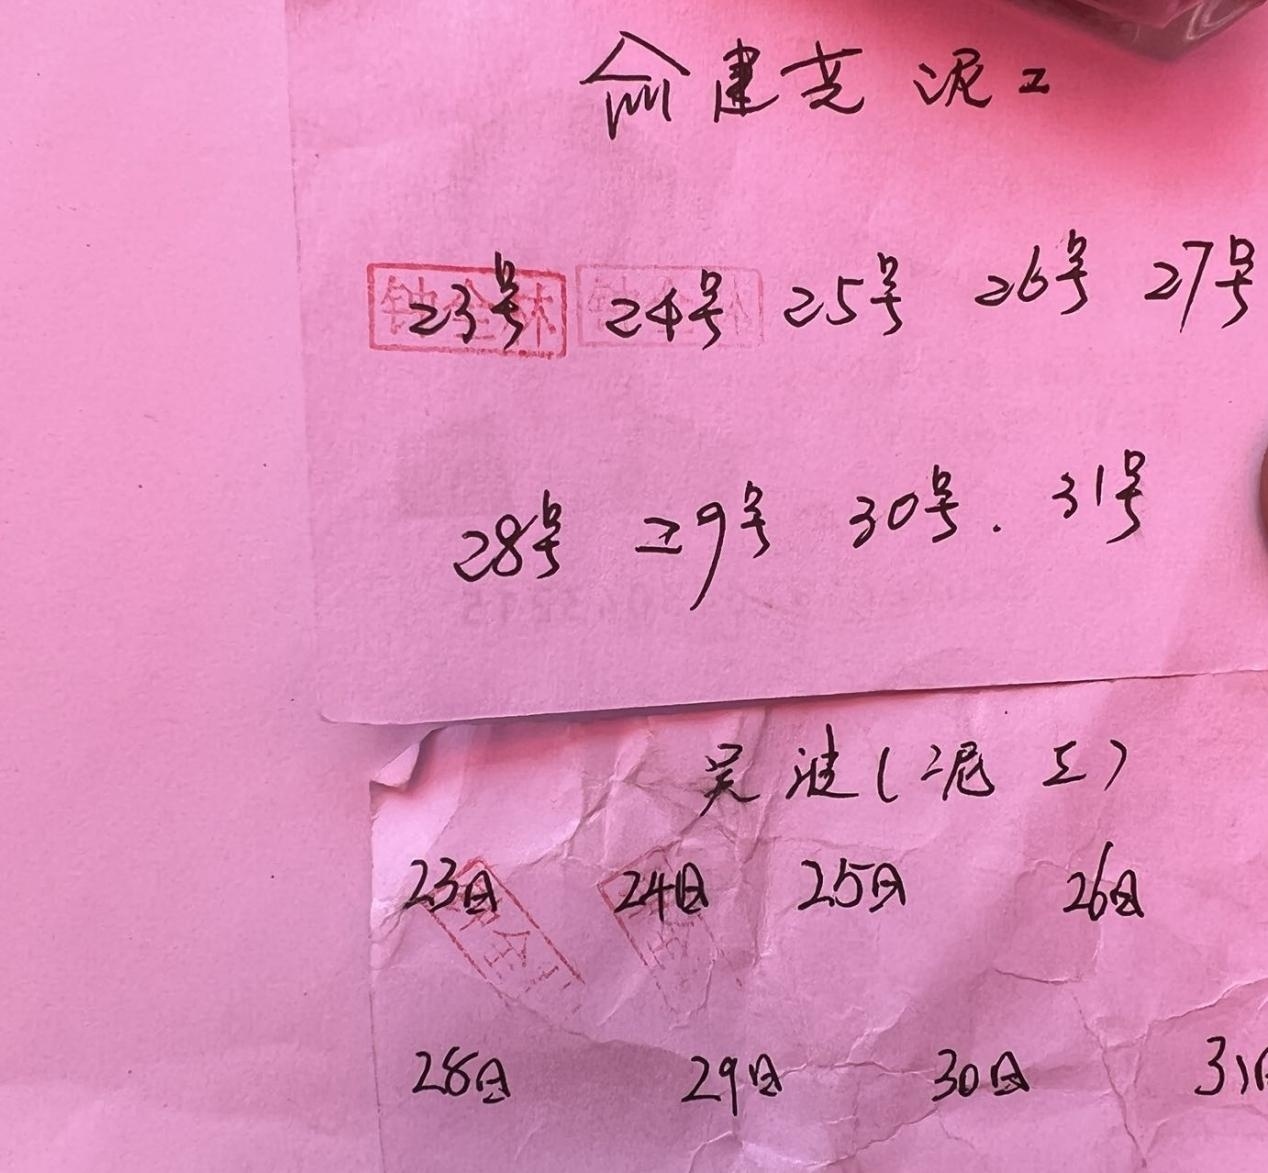 俞建尧 泥工
23号 24号 25号 26号 27号
28号 29号 30号. 31号
吴波(泥工)
23日 24日 25日 26日
28日 29日 30日 31日